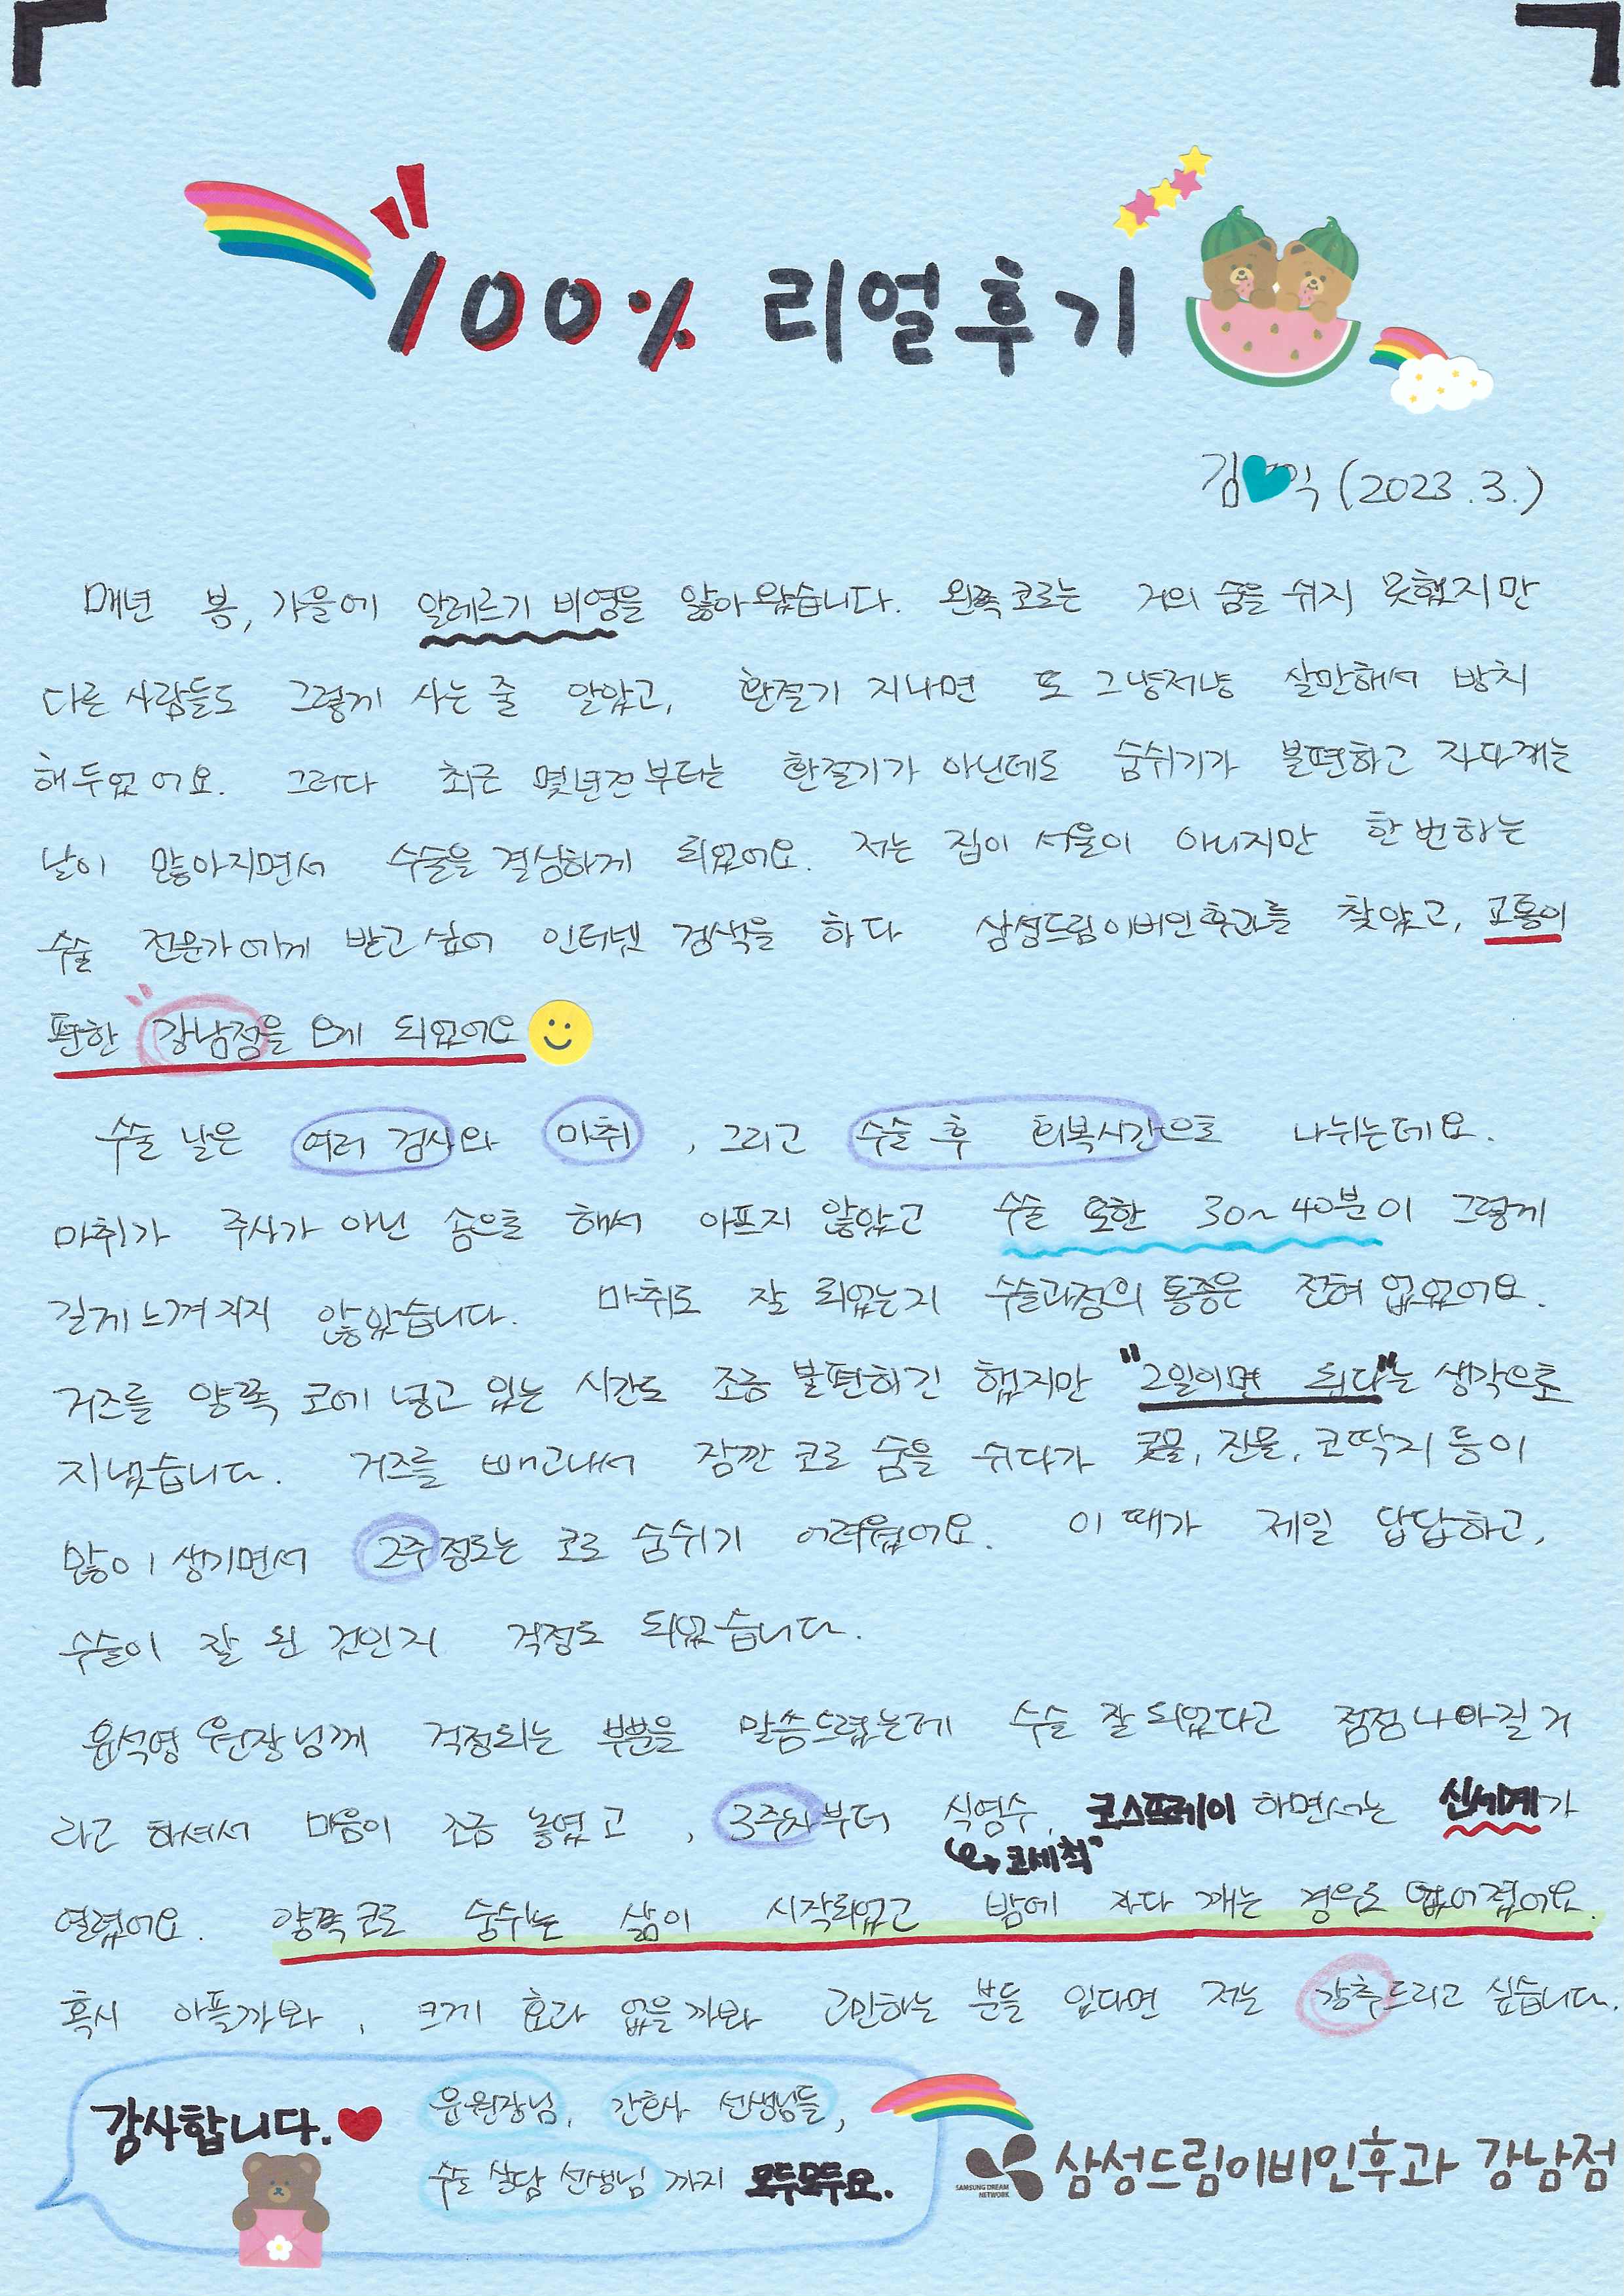 100% 리얼후기
김 익 (2023.3.)
매년 봄, 가을에 알레르기 비염을 앓아 왔습니다. 왼쪽 코로는 거의 숨을 쉬지 못했지만
다른 사람들도 그렇게 사는 줄 알았고, 환절기 지나면 또 그냥저냥 살만해서 방치
해두었어요. 그러다 최근 몇년전부터는 환절기가 아닌데도 숨쉬기가 불편하고 자다깨는
날이 많아지면서 수술을 결심하게 되었어요. 저는 집이 서울이 아니지만 한번하는
수술 전문가에게 받고싶어 인터넷 검색을 하다 삼성드림이비인후과를 찾았고, 교통이
편한 강남점을 오게 되었어요
수술 날은 여러 검사와 마취, 그리고 수술 후 회복시간으로 나뉘는데요.
마취가 주사가 아닌 솜으로 해서 아프지 않았고 수술 또한 30~40분이 그렇게
길게 느껴지지 않았습니다. 마취도 잘 되었는지 수술과정의 통증은 전혀 없었어요.
거즈를 양쪽 코에 넣고 있는 시간도 조금 불편하긴 했지만 "2일이면 된다"는 생각으로
지냈습니다. 거즈를 빼고나서 잠깐 코로 숨을 쉬다가 콧물, 진물, 코딱지 등이
많이 생기면서 2주정도는 코로 숨쉬기 어려웠어요. 이 때가 제일 답답하고,
수술이 잘 된 건인지 걱정도 되었습니다.
윤석영 원장님께 걱정되는 부분을 말씀드렸는데 수술 잘 되었다고 점점 나아질거
라고 하셔서 마음이 조금 놓였고, 3주차부터 식염수, 코스프레이 하면서는 신세계가
↳ 코세척
열렸어요. 양쪽코로 숨쉬는 삶이 시작되었고 밤에 자다 깨는 경우도 없어졌어요.
혹시 아플까봐, 크게 효과 없을까봐 고민하는 분들 있다면 저는 강추드리고 싶습니다.
감사합니다. 윤원장님, 간호사 선생님들,
수술 상담 선생님 까지 모두모두요.
SAMSUNG DREAM NETWORK 삼성드림이비인후과 강남점